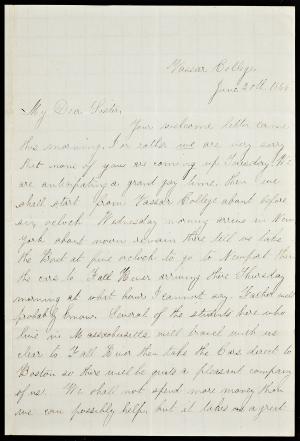 Vassar College,
June 20th, 186
My Dear Sister,
Your welcome letter came
this morning, I or rather we are very sorry
that none of you are coming up Tuesday. We
are anticipating a grand gay time. then we
shall start from Vassar College about before
six oclock Wednesday morning arrive in New
York about noon remain there till we take
the Boat at five oclock to go to Newport then
the cars to Fall River arriving there Thursday
morning at what hour I cannot say. Father will
probably know. Several of the students here who
live in Massachusetts will travel with us
clear to Fall River then take the Cars direct to
Boston so there will be quite a pleasant company
of us. We shall not spend more money than
we can possibly help, but it takes a great